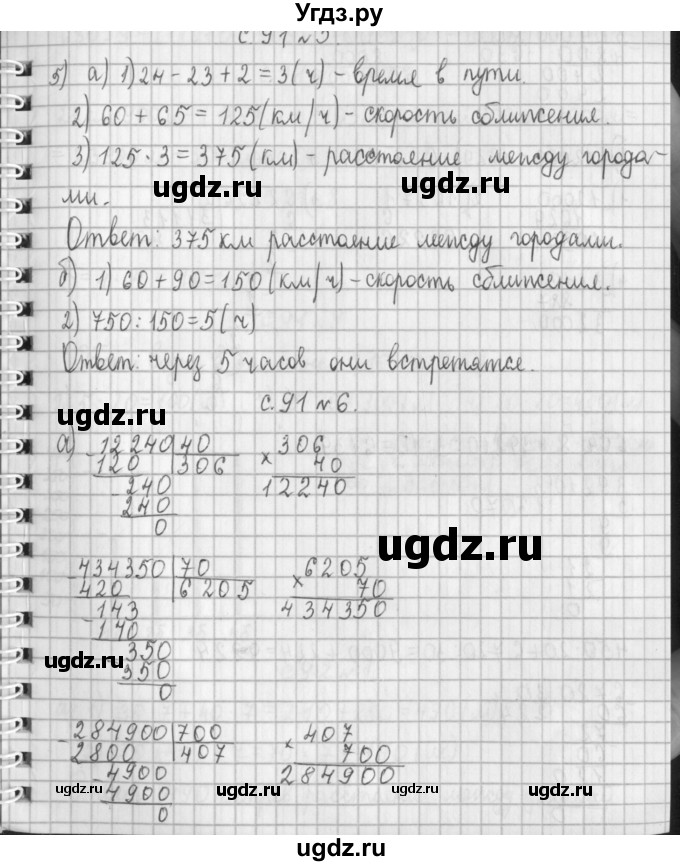 Угдз.ру
с.91 №5.
5) а) 1) 24 - 23 + 2 = 3 (ч) - время в пути.
2) 60 + 65 = 125 (км/ч) - скорость сближения.
3) 125 · 3 = 375 (км) - расстояние между города-
ugdz.ru ugdz.ru
ми.
Ответ: 375 км расстояние между городами.
б) 1) 60 + 90 = 150 (км/ч) - скорость сближения.
2) 750 : 150 = 5 (ч)
Ответ: через 5 часов они встретятся.
ugdz.ru
с.91 №6.
а) - 12240 40 306
120 306 × 40
- 240 12240
240
0
ugdz.ru
- 434350 70 6205
420 6205 × 70
- 143 434350
- 140
350
ugdz.ru
350
0
- 284900 700 407
2800 407 × 700
- 4900 284900
ugdz.ru ugdz.ru ugdz.ru
4900
0
ugdz.ru